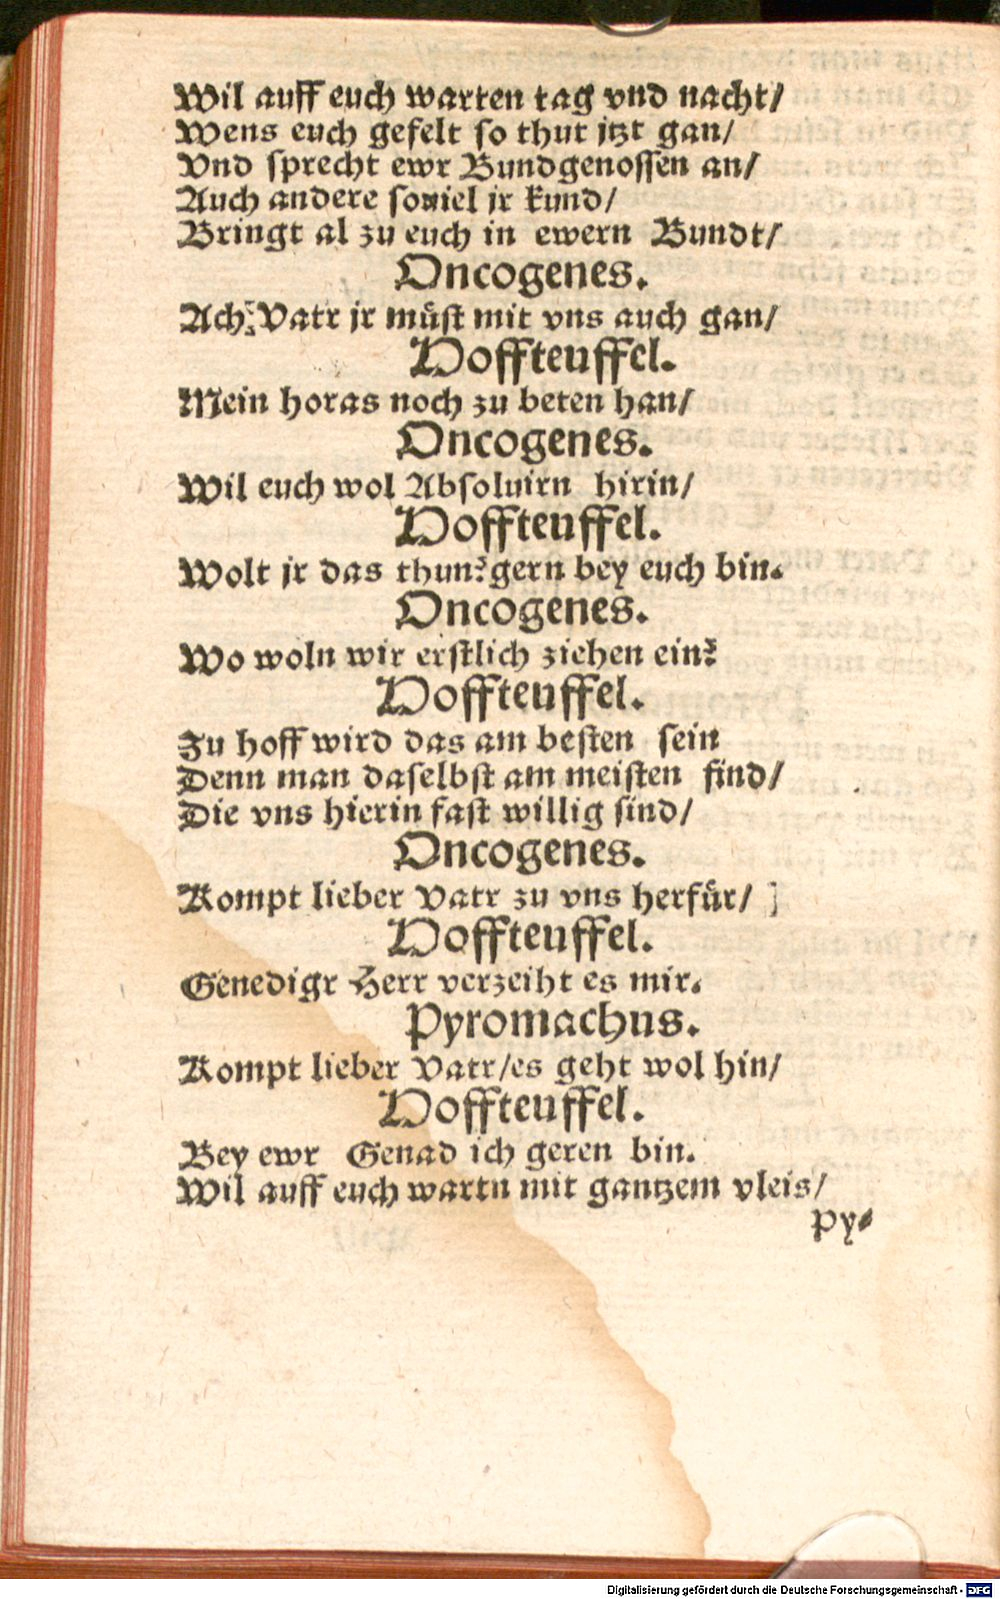 Wil auff euch warten tag vnd nacht/
Wens euch gefelt so thut jtzt gan/
Vnd sprecht ewr Bundgenossen an/
Auch andere soviel jr kund/
Bringt al zu euch in ewern Bundt/
Oncogenes.
Ach: Vatr jr müst mit vns auch gan/
Hoffteuffel.
Mein horas noch zu beten han/
Oncogenes.
Wil euch wol Absoluirn hirin/
Hoffteuffel.
Wolt jr das thun? gern bey euch bin.
Oncogenes.
Wo woln wir erstlich ziehen ein?
Hoffteuffel.
Zu hoff wird das am besten sein
Denn man daselbst am meisten find/
Die vns hierin fast willig sind/
Oncogenes.
Kompt lieber Vatr zu vns herfür/
Hoffteuffel.
Genedigr Herr verzeiht es mir.
Pyromachus.
Kompt lieber Vatr/es geht wol hin/
Hoffteuffel.
Bey ewr Genad ich geren bin.
Wil auff euch wartn mit gantzem vleis/
Py-
Digitalisierung gefördert durch die Deutsche Forschungsgemeinschaft - DFG